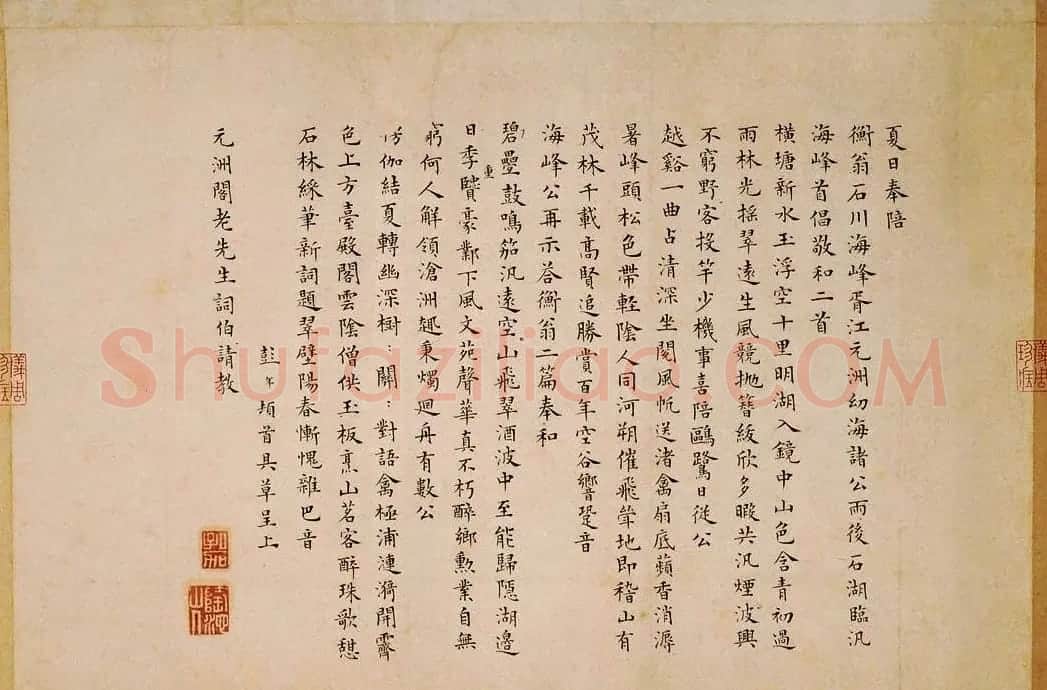 夏日奉陪
衡翁石川海峰胥江元洲幼海諸公雨後石湖臨汎
海峰首倡敬和二首
橫塘新水玉浮空十里明湖入鏡中山色含青初過
雨林光搖翠遠生風競拋簪綬欣多暇共汎煙波興
不窮野客投竿少機事喜陪鷗鷺日從公
越谿一曲占清深坐閱風帆送渚禽扇底蘋香消溽
暑峰頭松色帶輕陰人同河朔催飛斝地即稽山有
茂林千載高賢追勝賞百年空谷響跫音
海峰公再示荅衡翁二篇奉和
碧疊鼓鳴笳汎遠空山飛翠酒波中至能歸隱湖邊
日季重賢豪鄴下風文苑聲華真不朽醉鄉勲業自無
窮何人解領滄洲趣秉燭迴舟有數公
伽結夏轉幽深樹：關：對語禽極浦漣漪開霽
色上方臺殿閣雲陰僧供玉板烹山茗客醉珠歌憇
石林綵筆新詞題翠壁陽春慚愧雜巴音
彭年頓首具草呈上
元洲閣老先生詞伯請教
孔加
隆池山人
Shufaziliao.COM
儀周珍藏